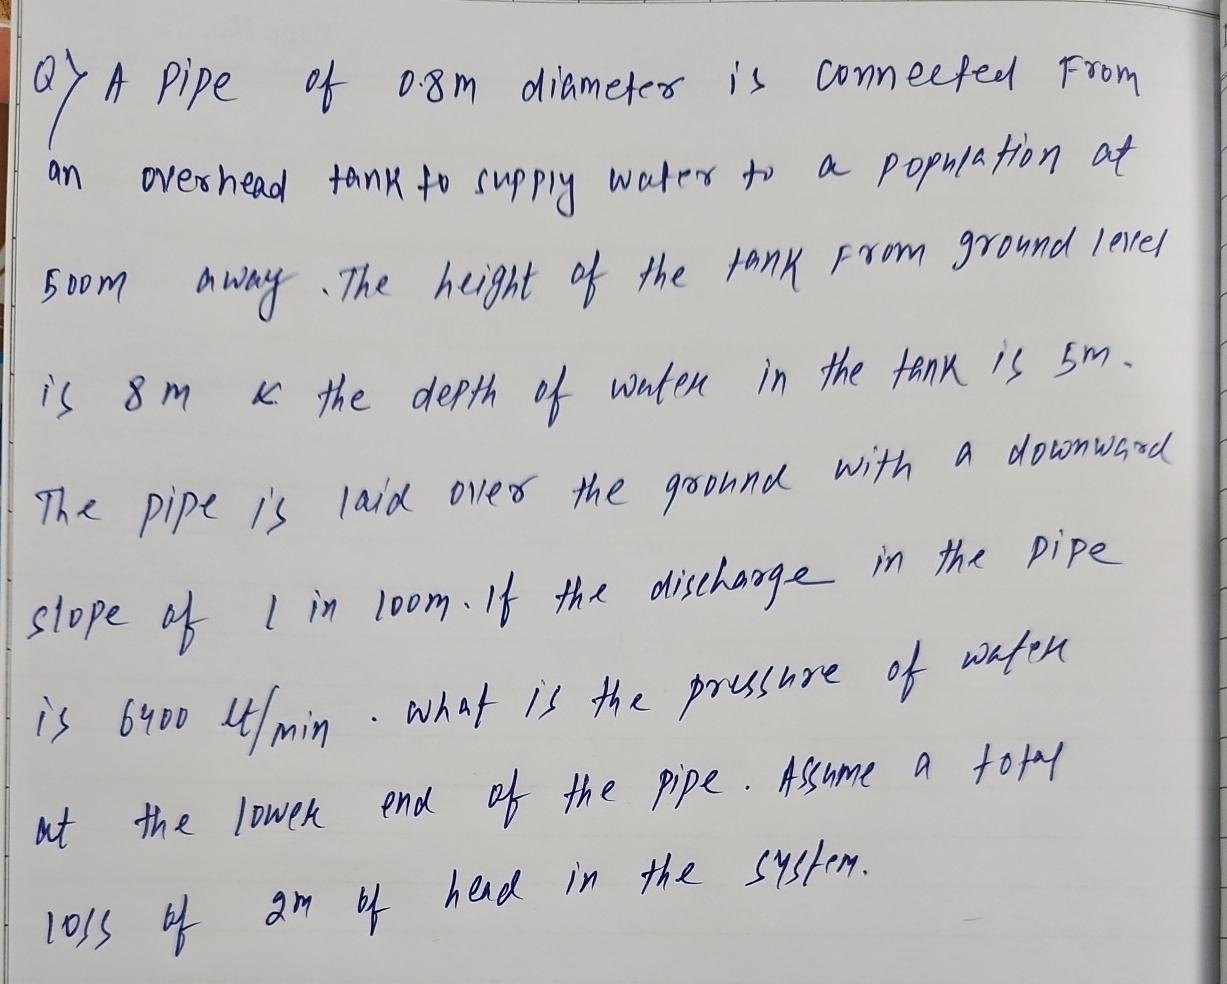 Q) A pipe of 0.8m diameter is connected From
an overhead tank to supply water to a population at
500m away. The height of the tank From ground level
is 8m & the depth of water in the tank is 5m.
The pipe is laid over the ground with a downward
slope of 1 in 100m. If the discharge in the pipe
is 6400 lt/min. what is the pressure of water
at the lower end of the pipe. Assume a total
loss of 2m of head in the system.